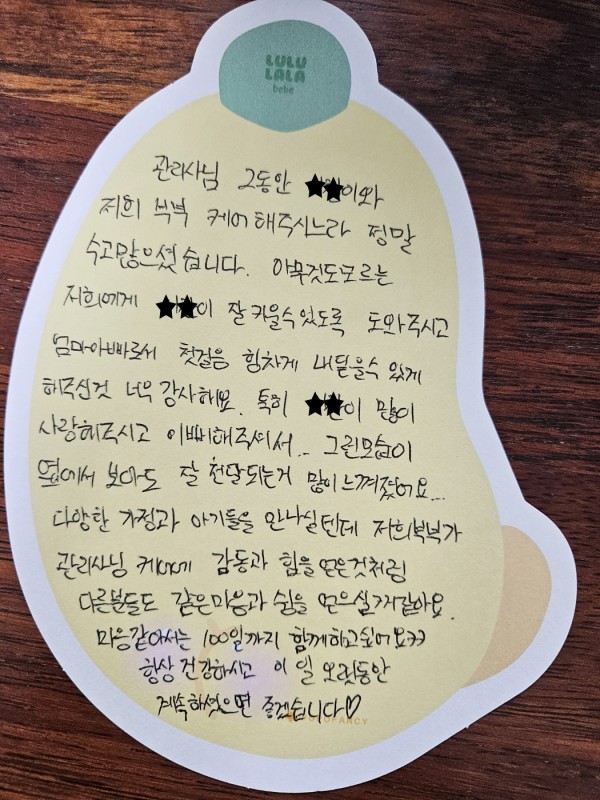 LULU
LALA
bebe
관리사님 그동안 이와
저희 부부 케어 해주시느라 정말
수고많으셨습니다. 아무것도모르는
저희에게 이 잘 키울수있도록 도와주시고
엄마아빠로서 첫걸음 힘차게 내딛을수 있게
해주신것 너무 감사해요. 특히 이 많이
사랑해주시고 이뻐해주셔서... 그런모습이
옆에서 보아도 잘 전달되는거 많이 느껴졌어요...
다양한 가정과 아기들을 만나실텐데 저희부부가
관리사님 케어에 감동과 힘을 얻은것처럼
다른분들도 같은마음과 쉼을 얻으실거같아요.
마음같아서는 100일까지 함께하고싶어요ㅋㅋ
항상 건강하시고 이 일 오랫동안
계속하셨으면 좋겠습니다♡